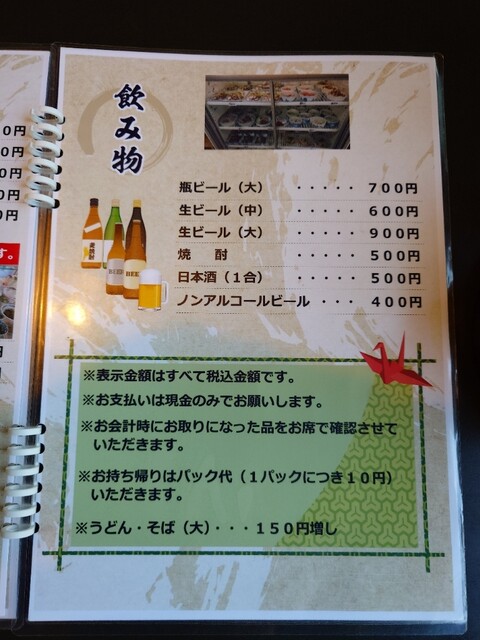 飲み物
瓶ビール（大） ・・・・・ 700円
生ビール（中） ・・・・・ 600円
生ビール（大） ・・・・・ 900円
焼　酎 ・・・・・ 500円
日本酒（1合） ・・・・・ 500円
ノンアルコールビール ・・・ 400円
※表示金額はすべて税込金額です。
※お支払いは現金のみでお願いします。
※お会計時にお取りになった品をお席で確認させて
いただきます。
※お持ち帰りはパック代（1パックにつき10円）
いただきます。
※うどん・そば（大）・・・150円増し
0円
0円
0円
0円
0円
す。
円